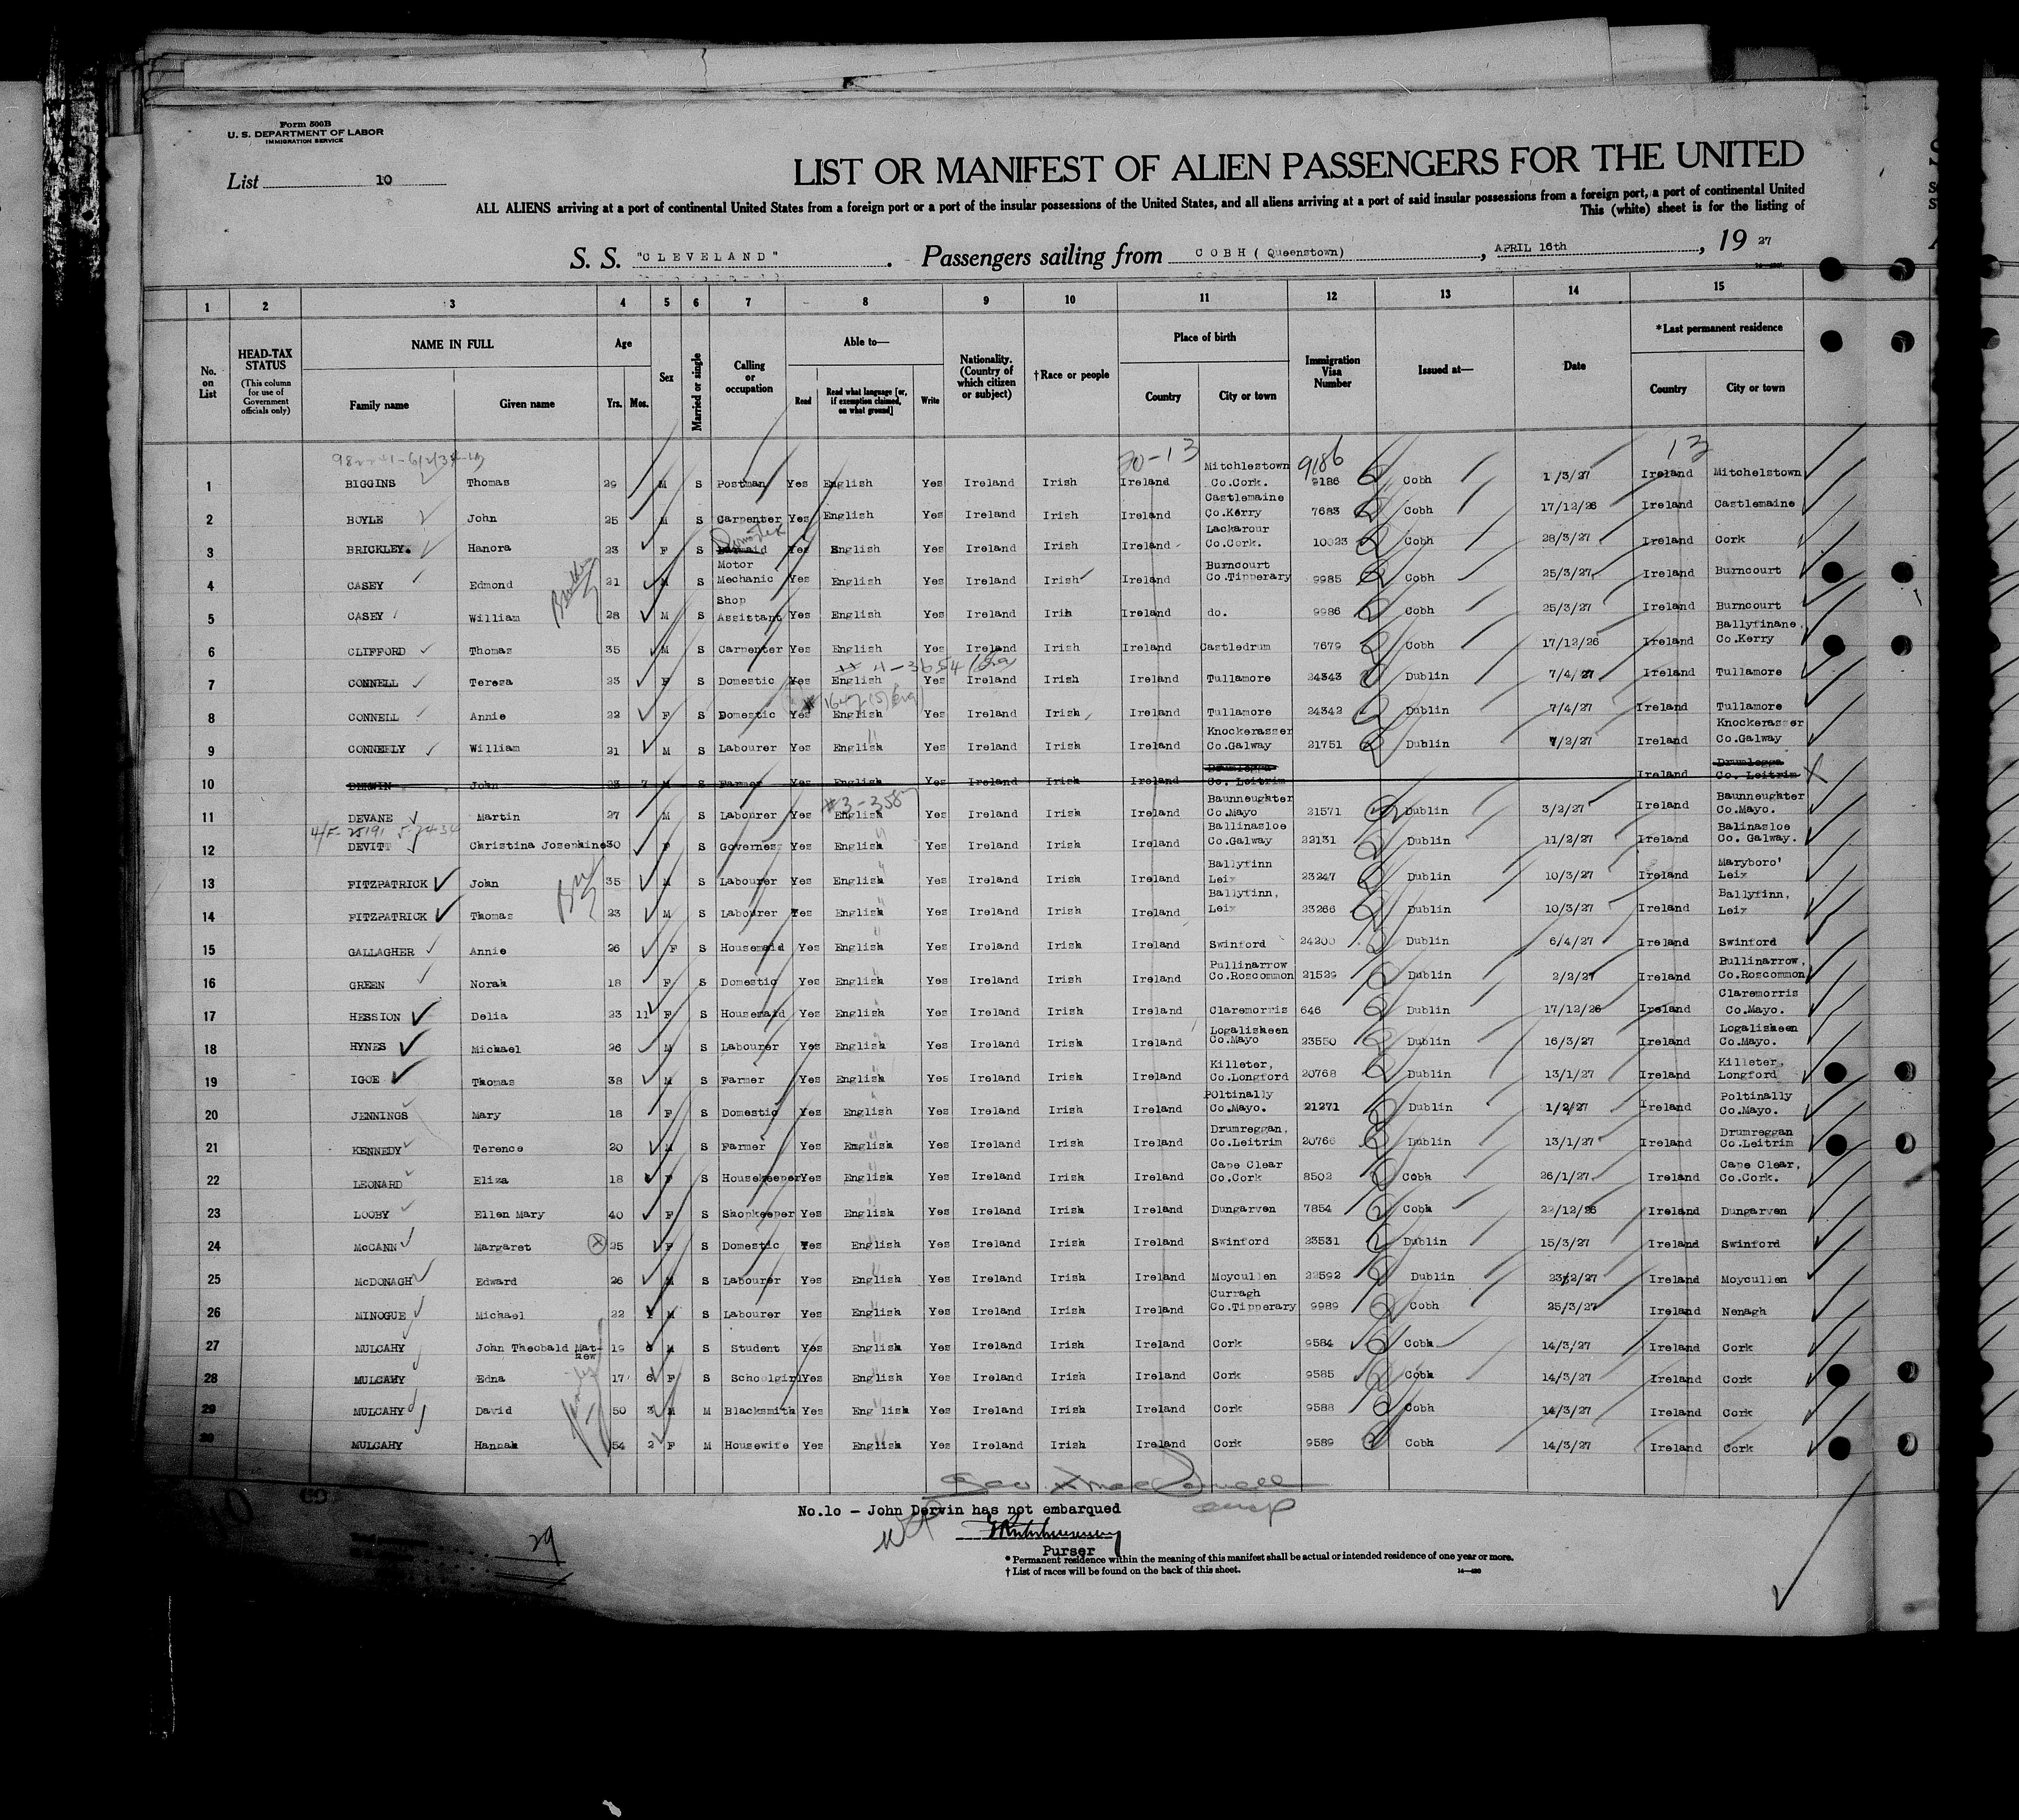 Form 500B
U. S. DEPARTMENT OF LABOR
IMMIGRATION SERVICE
List 10
LIST OR MANIFEST OF ALIEN PASSENGERS FOR THE UNITED
ALL ALIENS arriving at a port of continental United States from a foreign port or a port of the insular possessions of the United States, and all aliens arriving at a port of said insular possessions from a foreign port, a port of continental United
This (white) sheet is for the listing of
S. S. "CLEVELAND" . Passengers sailing from COBH (Queenstown) , APRIL 16th , 19 27
1 2 3 4 5 6 7 8 9 10 11 12 13 14 15
No. on List
HEAD-TAX STATUS (This column for use of Government officials only)
NAME IN FULL
Family name Given name
Age
Yrs. Mos.
Sex
Married or single
Calling or occupation
Able to—
Read Read what language [or, if exemption claimed, on what ground] Write
Nationality. (Country of which citizen or subject)
†Race or people
Place of birth
Country City or town
Immigration Visa Number
Issued at—
Date
*Last permanent residence
Country City or town
20-13 9186 13
1 BIGGINS Thomas 29 M S Postman Yes English Yes Ireland Irish Ireland Mitchlestown Co.Cork. 9186 Cobh 1/3/27 Ireland Mitchelstown
2 BOYLE John 25 M S Carpenter Yes English Yes Ireland Irish Ireland Castlemaine Co.Kerry 7683 Cobh 17/12/26 Ireland Castlemaine
3 BRICKLEY. Hanora 23 F S Domestic Yes English Yes Ireland Irish Ireland Lackarour Co.Cork. 10023 Cobh 28/3/27 Ireland Cork
4 CASEY Edmond 21 M S Motor Mechanic Yes English Yes Ireland Irish Ireland Burncourt Co.Tipperary 9985 Cobh 25/3/27 Ireland Burncourt
5 CASEY William 28 M S Shop Assistant Yes English Yes Ireland Irih Ireland do. 9986 Cobh 25/3/27 Ireland Burncourt
6 CLIFFORD Thomas 35 M S Carpenter Yes English Yes Ireland Irish Ireland Castledrum 7679 Cobh 17/12/26 Ireland Ballyfinane, Co.Kerry
7 CONNELL Teresa 23 F S Domestic Yes English Yes Ireland Irish Ireland Tullamore 24343 Dublin 7/4/27 Ireland Tullamore
8 CONNELL Annie 22 F S Domestic Yes English Yes Ireland Irish Ireland Tullamore 24342 Dublin 7/4/27 Ireland Tullamore
9 CONNEELY William 21 M S Labourer Yes English Yes Ireland Irish Ireland Knockerasser Co.Galway 21751 Dublin 7/2/27 Ireland Knockerasser Co.Galway
10 DERWIN John 23 7 M S Farmer Yes English Yes Ireland Irish Ireland Drumlegga Co. Leitrim Ireland Drumlegga Co. Leitrim
11 DEVANE Martin 27 M S Labourer Yes English Yes Ireland Irish Ireland Baunneughter Co.Mayo 21571 Dublin 3/2/27 Ireland Baunneughter Co.Mayo.
12 DEVITT Christina Josephine 30 F S Governess Yes English Yes Ireland Irish Ireland Ballinasloe Co.Galway 22131 Dublin 11/2/27 Ireland Balinasloe Co. Galway.
13 FITZPATRICK John 35 M S Labourer Yes English Yes Ireland Irish Ireland Ballyfinn Leix 23247 Dublin 10/3/27 Ireland Maryboro' Leix
14 FITZPATRICK Thomas 23 M S Labourer Yes English Yes Ireland Irish Ireland Ballyfinn, Leix 23266 Dublin 10/3/27 Ireland Ballyfinn, Leix
15 GALLAGHER Annie 26 F S Housemaid Yes English Yes Ireland Irish Ireland Swinford 24200 Dublin 6/4/27 Ireland Swinford
16 GREEN Norah 18 F S Domestic Yes English Yes Ireland Irish Ireland Pullinarrow Co.Roscommon 21529 Dublin 2/2/27 Ireland Bullinarrow, Co.Roscommon
17 HESSION Delia 23 11 F S Housemaid Yes English Yes Ireland Irish Ireland Claremorris 646 Dublin 17/12/26 Ireland Claremorris Co.Mayo.
18 HYNES Michael 26 M S Labourer Yes English Yes Ireland Irish Ireland Logalisheen Co.Mayo 23550 Dublin 16/3/27 Ireland Logalisheen Co.Mayo.
19 IGOE Thomas 38 M S Farmer Yes English Yes Ireland Irish Ireland Killeter, Co.Longford 20768 Dublin 13/1/27 Ireland Killeter, Longford
20 JENNINGS Mary 18 F S Domestic Yes English Yes Ireland Irish Ireland Poltinally Co.Mayo. 21271 Dublin 1/2/27 Ireland Poltinally Co.Mayo.
21 KENNEDY Terence 20 M S Farmer Yes English Yes Ireland Irish Ireland Drumreggan, Co.Leitrim 20766 Dublin 13/1/27 Ireland Drumreggan Co.Leitrim
22 LEONARD Eliza 18 F S Housekeeper Yes English Yes Ireland Irish Ireland Cape Clear Co.Cork 8502 Cobh 26/1/27 Ireland Cape Clear, Co.Cork.
23 LOOBY Ellen Mary 40 F S Shopkeeper Yes English Yes Ireland Irish Ireland Dungarven 7854 Cobh 22/12/26 Ireland Dungarven
24 McCANN Margaret 25 F S Domestic Yes English Yes Ireland Irish Ireland Swinford 23531 Dublin 15/3/27 Ireland Swinford
25 McDONAGH Edward 26 M S Labourer Yes English Yes Ireland Irish Ireland Moycullen 22592 Dublin 23/2/27 Ireland Moycullen
26 MINOGUE Michael 22 M S Labourer Yes English Yes Ireland Irish Ireland Curragh Co.Tipperary 9989 Cobh 25/3/27 Ireland Nenagh
27 MULCAHY John Theobald Mathew 19 M S Student Yes English Yes Ireland Irish Ireland Cork 9584 Cobh 14/3/27 Ireland Cork
28 MULCAHY Edna 17 6 F S Schoolgirl Yes English Yes Ireland Irish Ireland Cork 9585 Cobh 14/3/27 Ireland Cork
29 MULCAHY David 50 3 M M Blacksmith Yes English Yes Ireland Irish Ireland Cork 9588 Cobh 14/3/27 Ireland Cork
30 MULCAHY Hannah 54 2 F M Housewife Yes English Yes Ireland Irish Ireland Cork 9589 Cobh 14/3/27 Ireland Cork
No.10 - John Derwin has not embarqued
Purser
29
* Permanent residence within the meaning of this manifest shall be actual or intended residence of one year or more.
† List of races will be found on the back of this sheet.